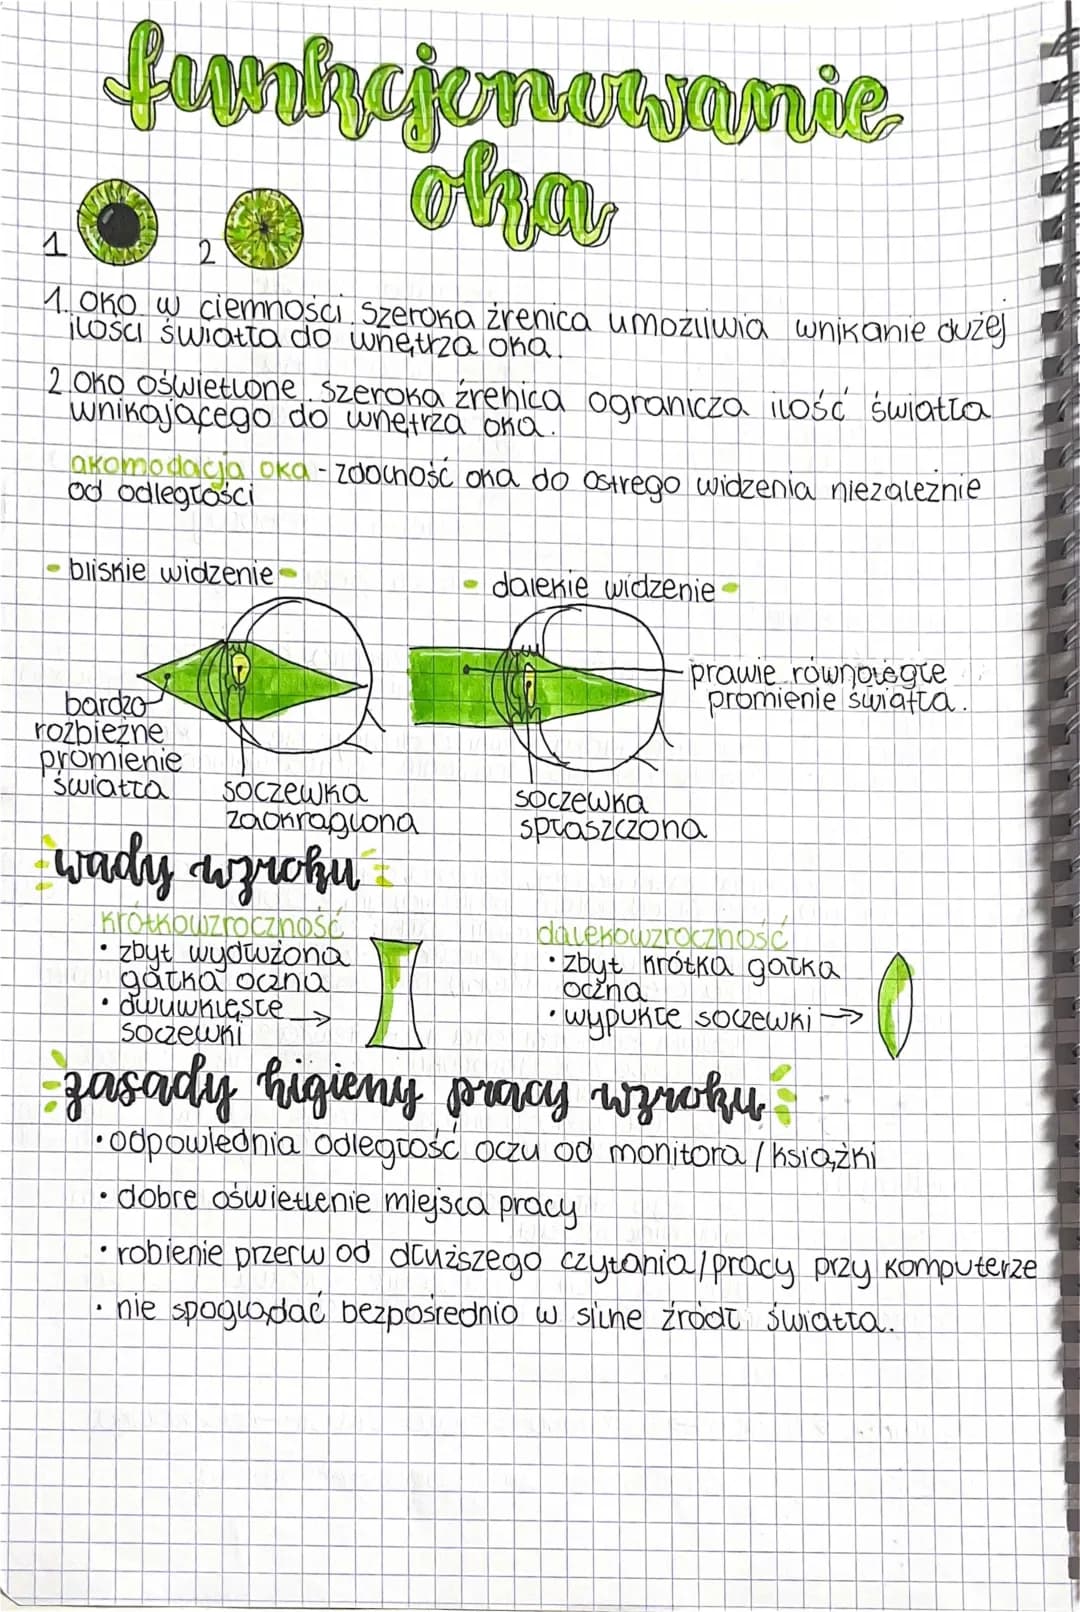 funkcjonowanie
oka
1
2
1. oko w ciemności. Szeroka źrenica umożliwia wnikanie dużej
ilości światła do wnętrza oka.
2 oko oświetlone. Szeroka źrenica ogranicza ilość światła
wnikającego do wnętrza oka.
akomodacja oka - zdolność oka do ostrego widzenia niezależnie
od odległości
- bliskie widzenie -
- dalekie widzenie -
bardzo
rozbieżne
promienie
światła
soczewka
zaokrąglona
prawie równoległe
promienie światła.
soczewka
spłaszczona
wady wzroku
krótkowzroczność
• zbyt wydłużona
gałka oczna
• dwuwklęsłe →
soczewki
dalekowzroczność
• zbyt krótka gałka
oczna
• wypukłe soczewki →
zasady higieny pracy wzroku
• odpowiednia odległość oczu od monitora / książki
• dobre oświetlenie miejsca pracy
• robienie przerw od dłuższego czytania/pracy przy komputerze
• nie spoglądać bezpośrednio w silne źródł światła.